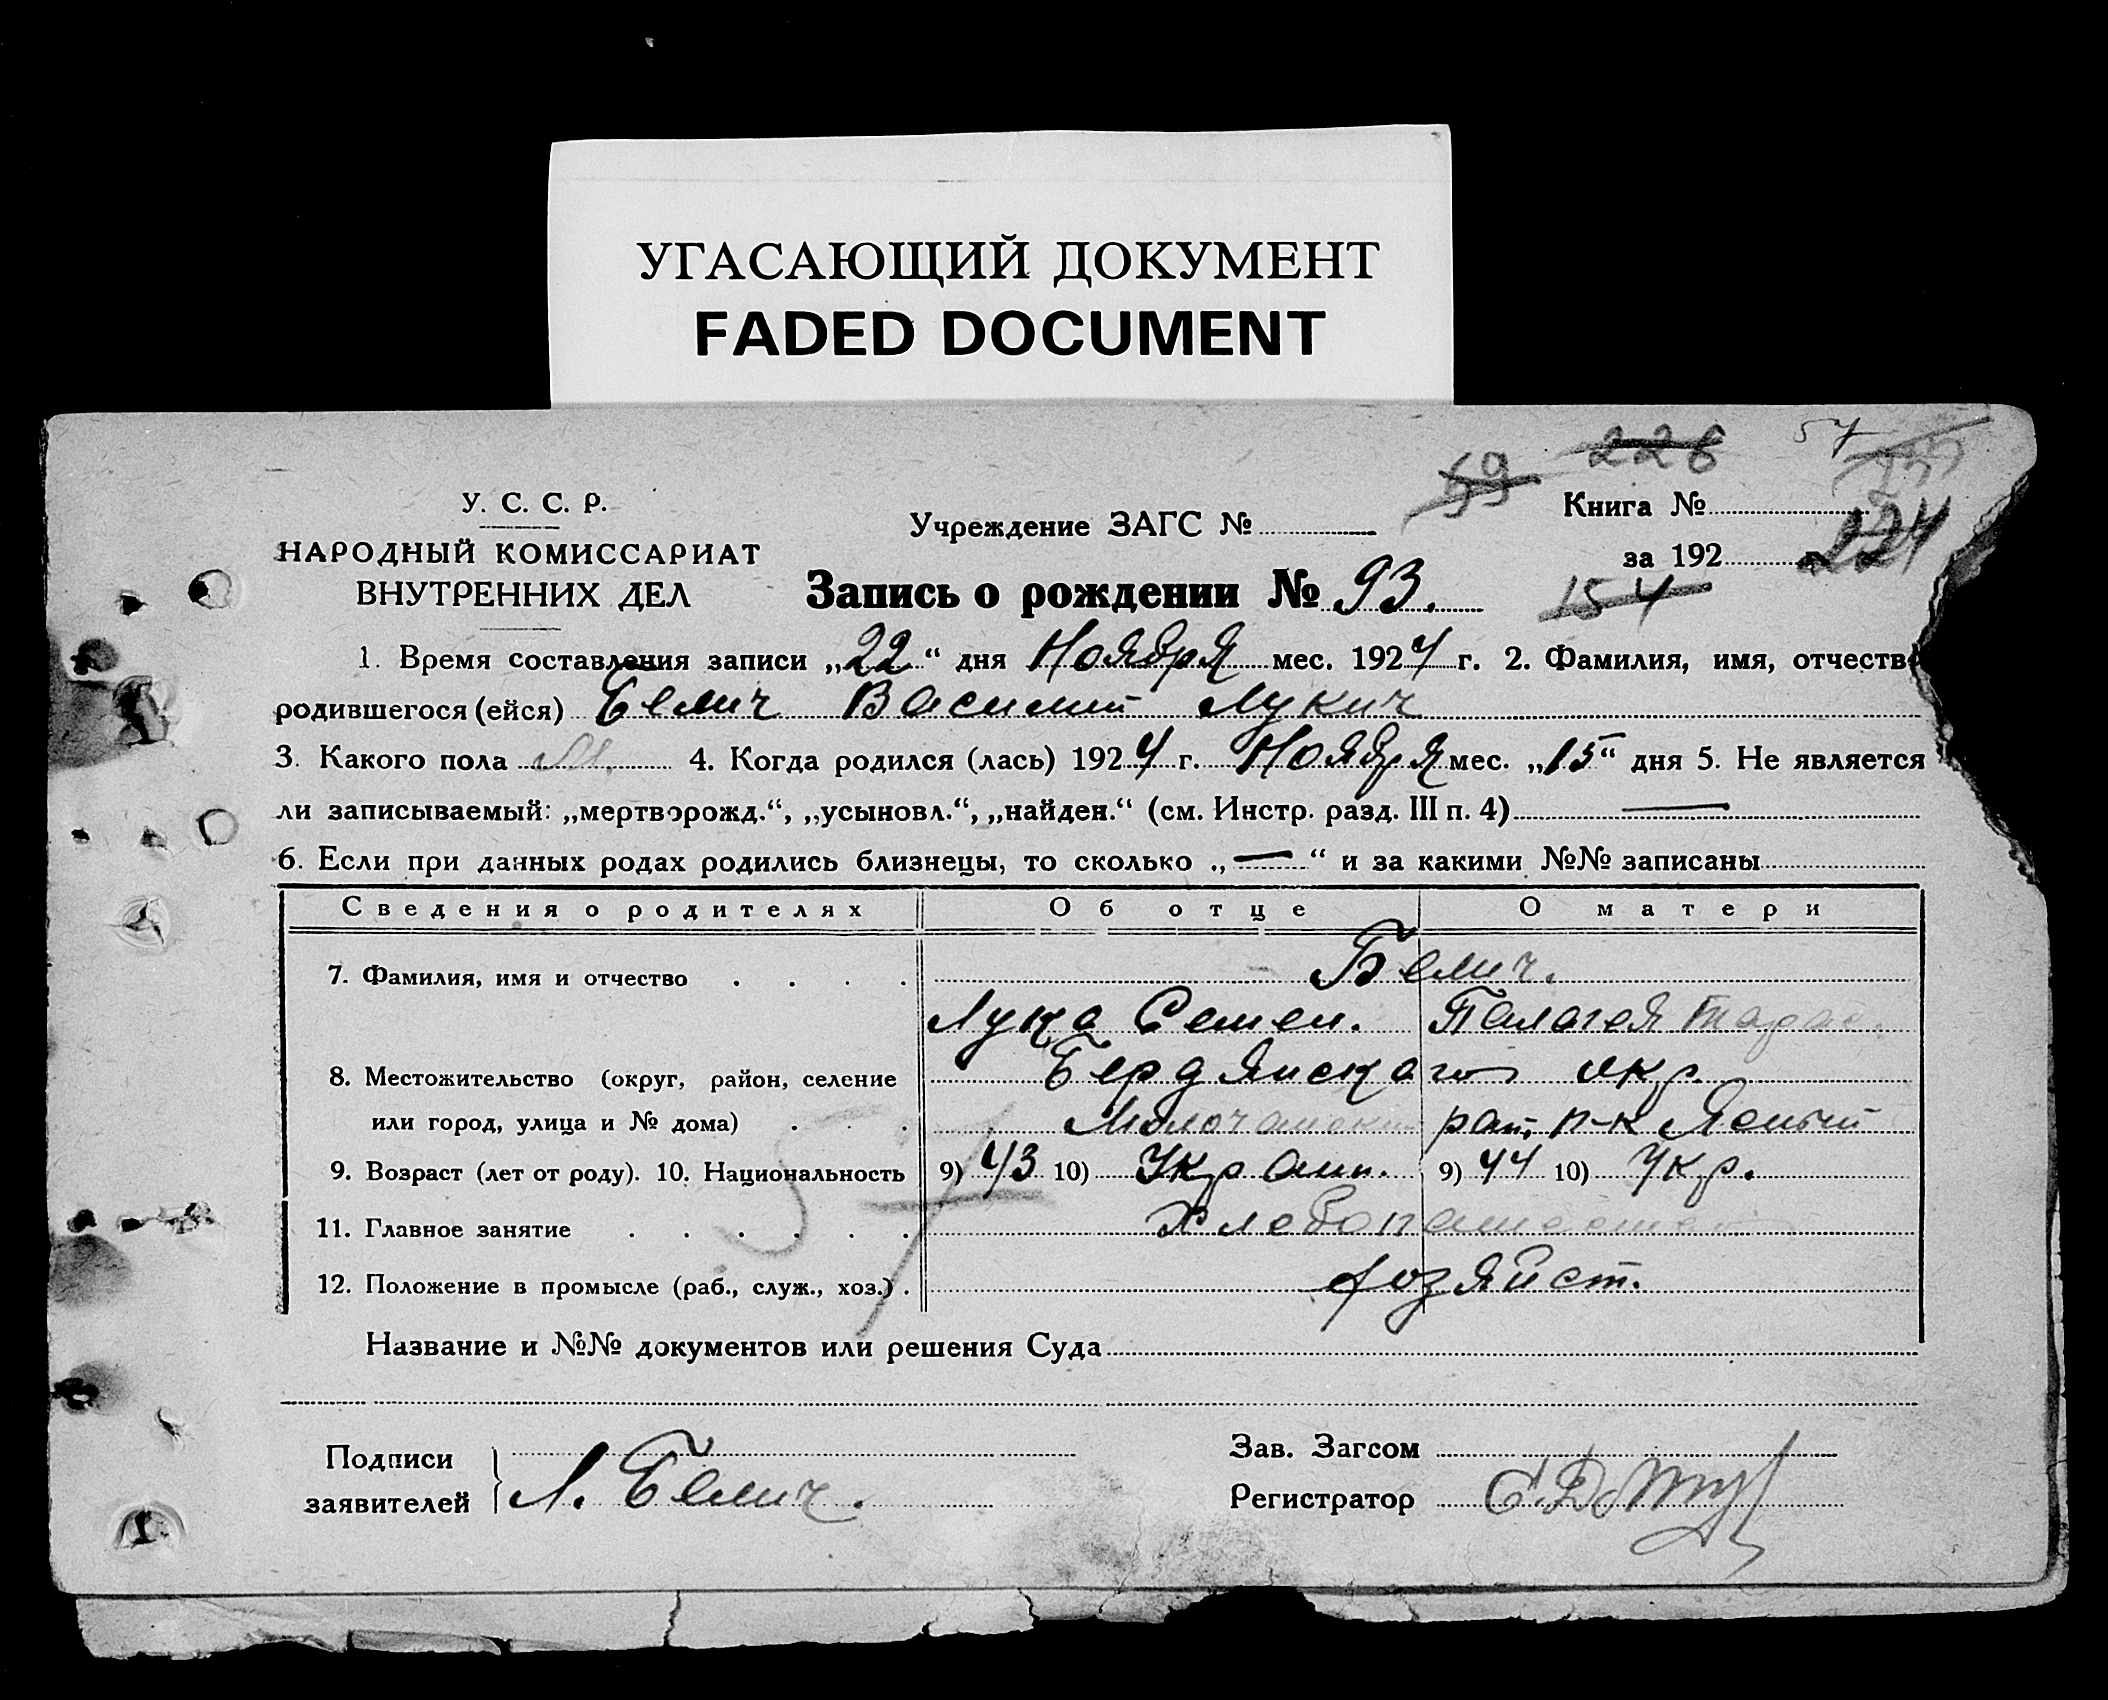 УГАСАЮЩИЙ ДОКУМЕНТ
FADED DOCUMENT
59 226 54
У. С. С. Р.
НАРОДНЫЙ КОМИССАРИАТ
ВНУТРЕННИХ ДЕЛ
Учреждение ЗАГС №
Книга №
за 192 224
Запись о рождении № 93.
154
1. Время составления записи „22“ дня Ноября мес. 1924 г. 2. Фамилия, имя, отчество
родившегося (ейся) Белич Василий Лукич
3. Какого пола М. 4. Когда родился (лась) 1924 г. Ноября мес. „15“ дня 5. Не является
ли записываемый: „мертворожд.“, „усыновл.“, „найден.“ (см. Инстр. разд. III п. 4) —
6. Если при данных родах родились близнецы, то сколько „—“ и за какими №№ записаны
Сведения о родителях Об отце О матери
7. Фамилия, имя и отчество . . . . Белич.
Лука Семен. Палагея Тарас.
8. Местожительство (округ, район, селение Бердянского окр.
или город, улица и № дома) . . . рай, п-к Ясный
9. Возраст (лет от роду). 10. Национальность 9) 43 10) Украин. 9) 44 10) Укр.
11. Главное занятие . . . . . .
12. Положение в промысле (раб., служ., хоз.) . хозяйст.
57
Название и №№ документов или решения Суда
Подписи
заявителей Л. Белич.
Зав. Загсом
Регистратор